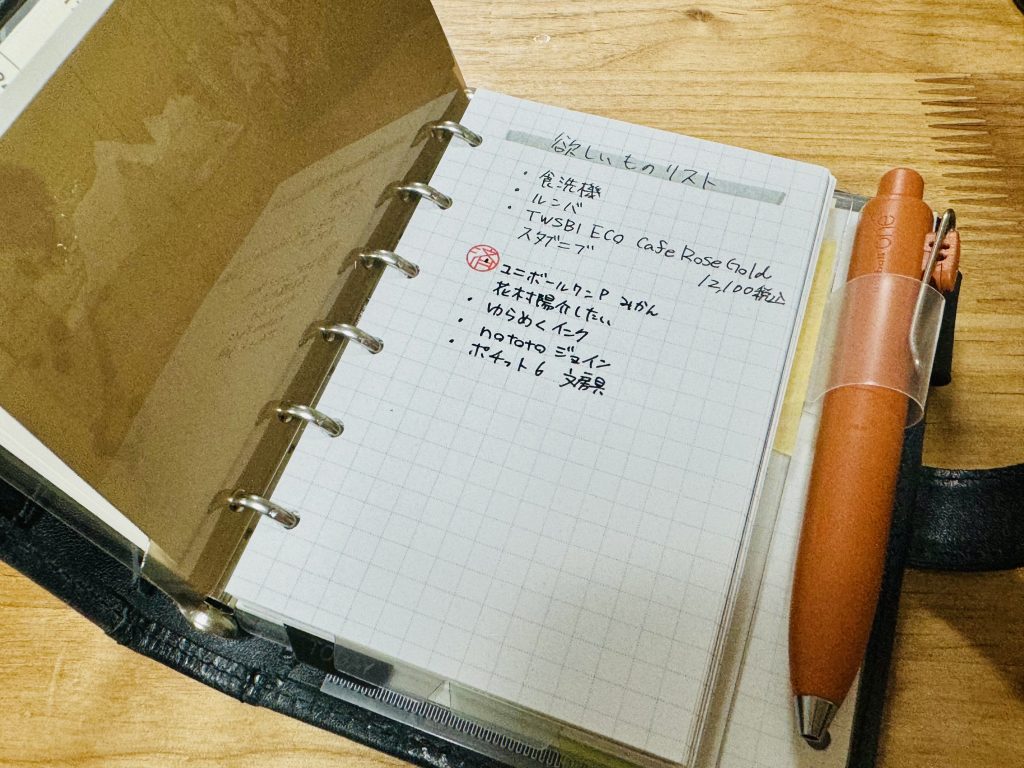 欲しいものリスト
・食洗機
・ルンバ
・TWSBI ECO Cafe RoseGold
スタブニブ
12,100税込
済
ユニボールワンP みかん
花村陽介したい
・ゆらめくインク
・nototo ジョイン
・ポチット6 文房具
one